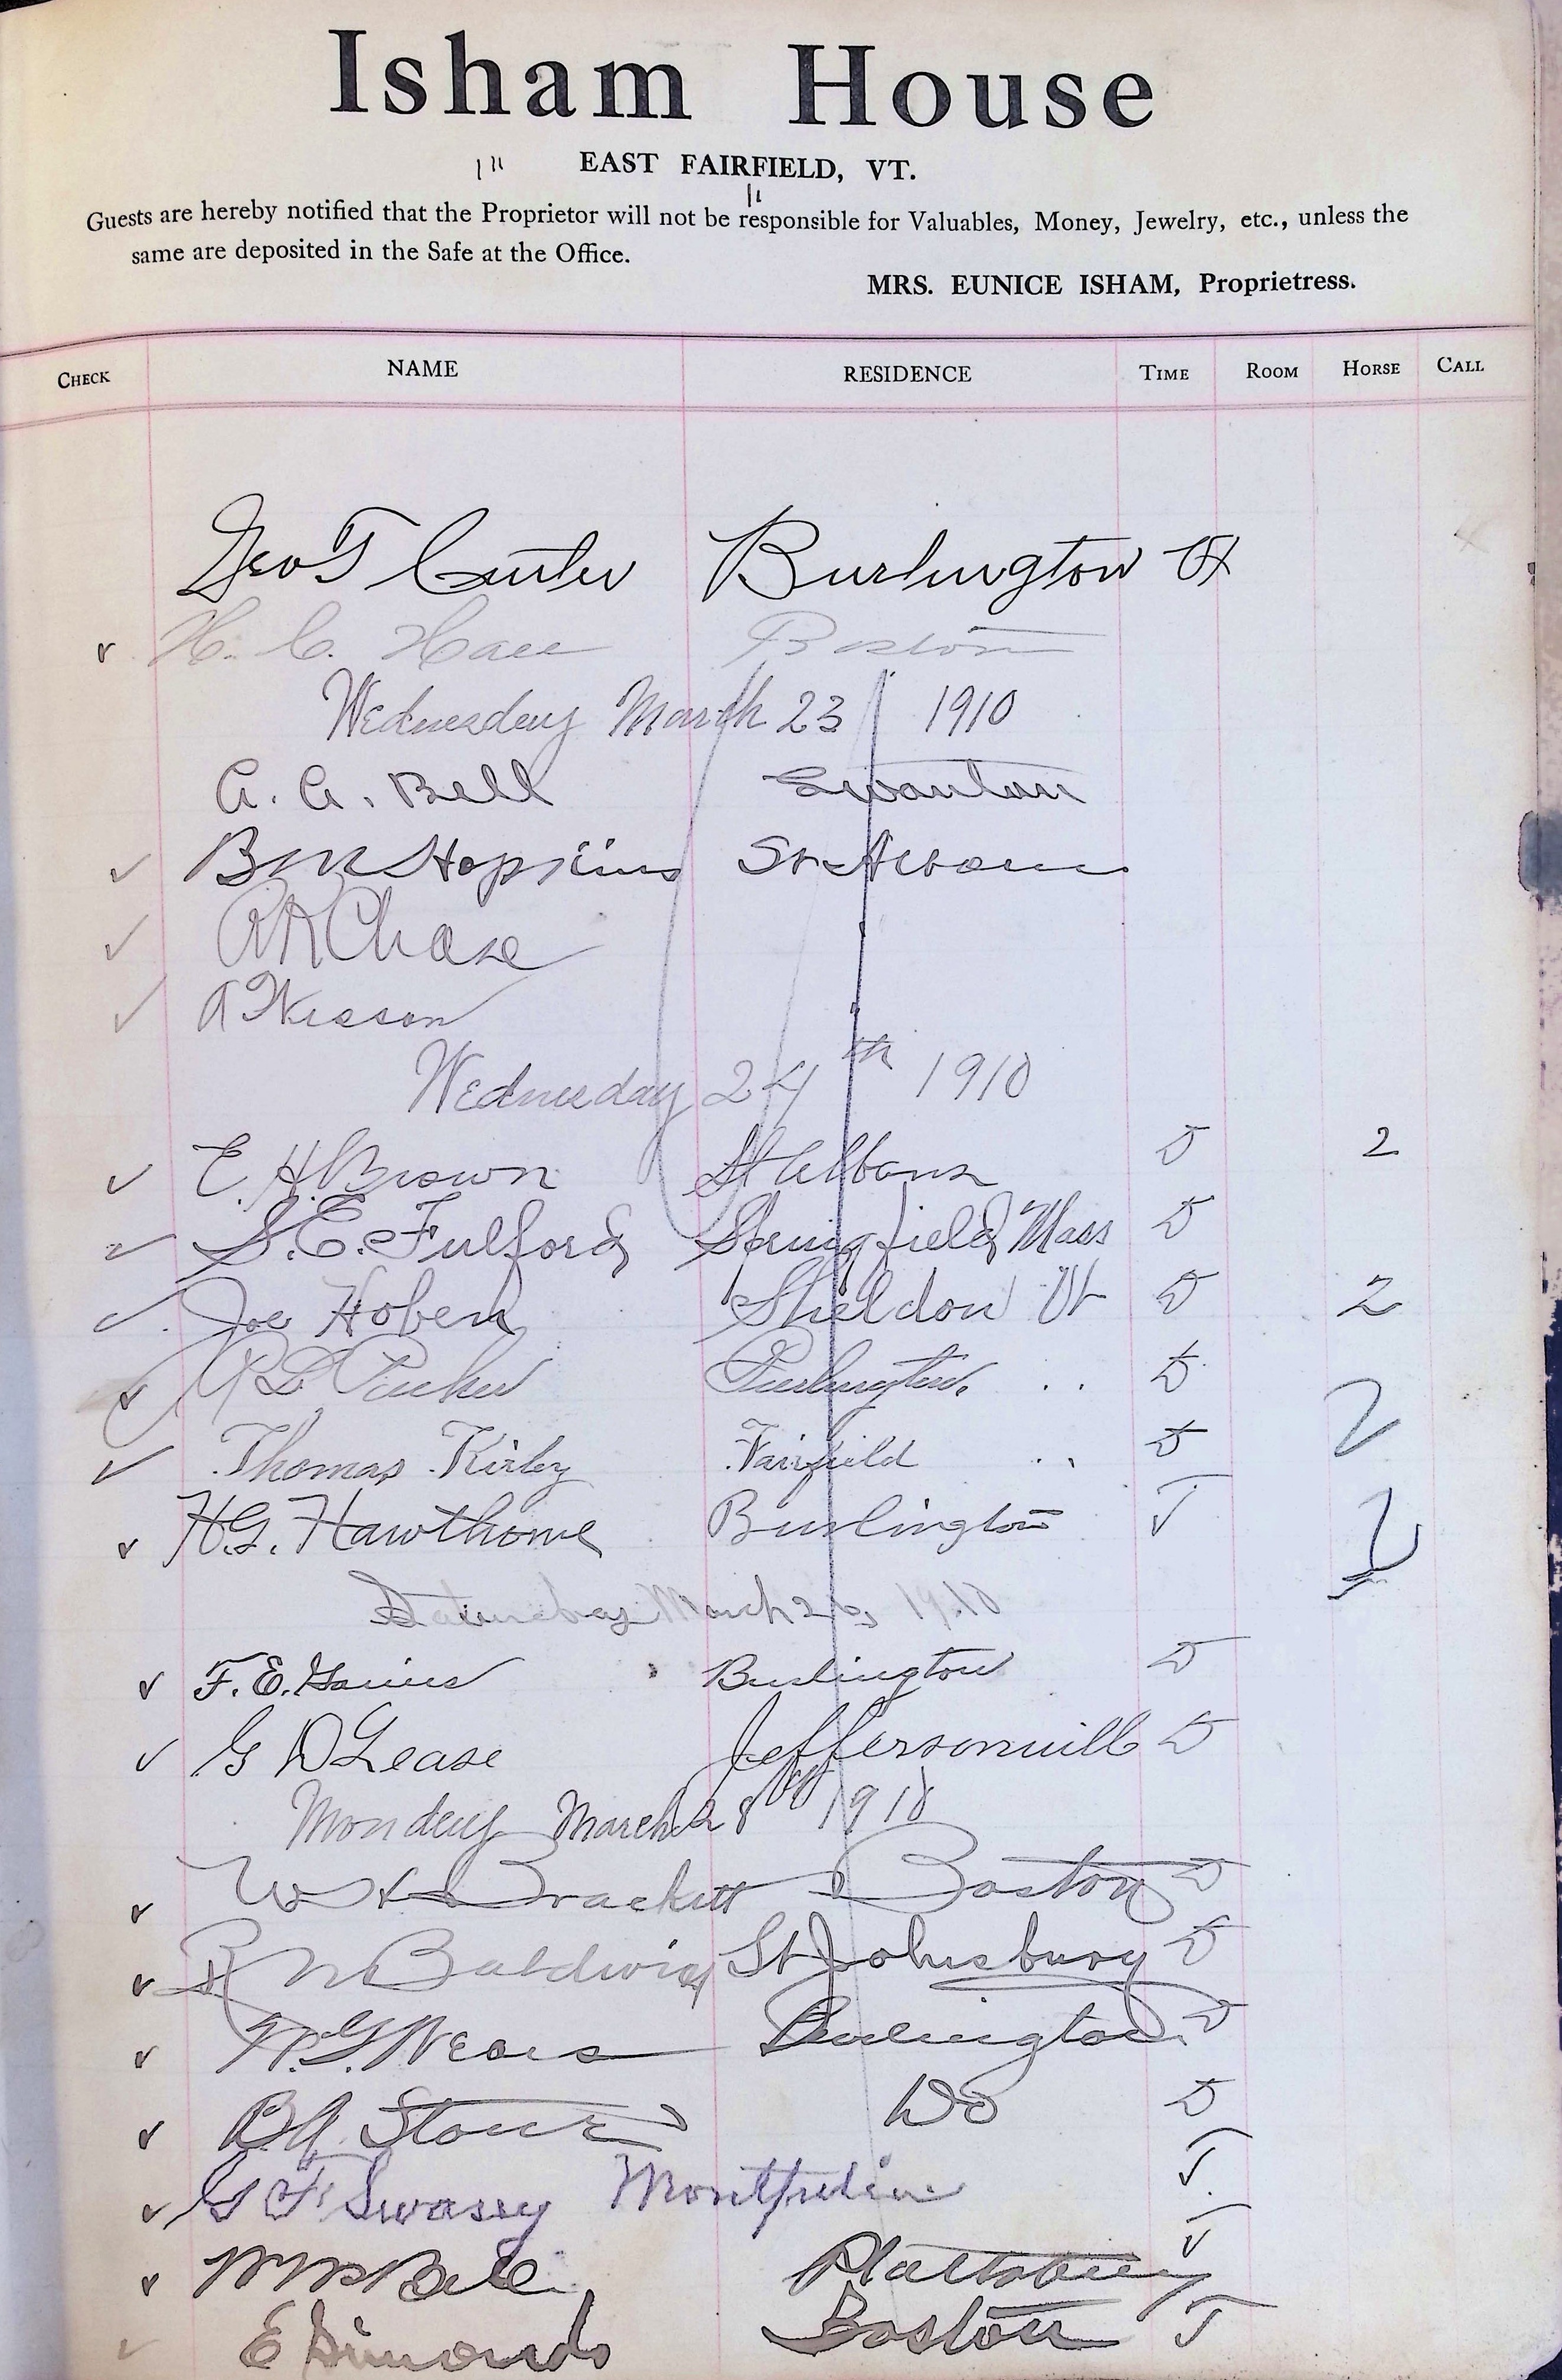 Isham House
EAST FAIRFIELD, VT.
Guests are hereby notified that the Proprietor will not be responsible for Valuables, Money, Jewelry, etc., unless the
same are deposited in the Safe at the Office.
MRS. EUNICE ISHAM, Proprietress.
CHECK NAME RESIDENCE TIME ROOM HORSE CALL
Geo T Burlington Vt
H. C. Boston
Wednesday March 23 1910
Bell Swanton
B M Hopkins St Albans
Chase
Wednesday 24th 1910
E. H. Brown St Albans D 2
S. E. Fulford Springfield Mass D
Joe Hoben Sheldon Vt D 2
Burlington. D
Thomas Kirby Fairfield D 2
H.G. Hawthorne Burlington
Saturday March 26, 1910
F. E. Burlington D
G D Lease Jeffersonville D
Monday March 28 1910
W H Brackett Boston D
R N Baldwin St Johnsbury D
Burlington D
Do D
G F Swasey Montpelier
Plattsburg
E Simonds Boston